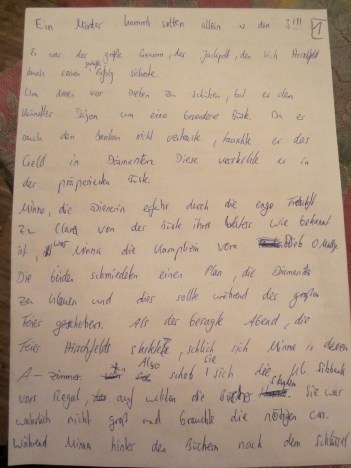 Ein Mörder kommt selten allein v. den 3!!! 1
Es war der große Gewinn, der Jackpott, den sich Hirschfeld
durch seinen großen Erfolg sicherte.
Um diesen vor Dieben zu schützen, bat er den
Künstler Dijon um eine besondere Büste. Da er
auch den Banken nicht vertraute, tauschte er das
Geld in Diamanten. Diese versteckte er in
der präparierten Büste.
Minna, die Dienerin erfuhr durch die enge
zu Clara von der Büste ihres Wie bekannt
ist, war Minna die Komplizin vom
Die beiden schmiedeten einen Plan, die Diamanten
zu klauen und dies sollte während der großen
Feier geschehen. Als der besagte Abend, die
Feier Hirschfelds startete, schlich sich Minna in dessen
A-zimmer. Also schob sie sich die
vors Regal, auf welchen die Sie war
wahrlich nicht groß und brauchte die nötigen cm.
Während Minna hinter den Büchern nach dem Schlüssel